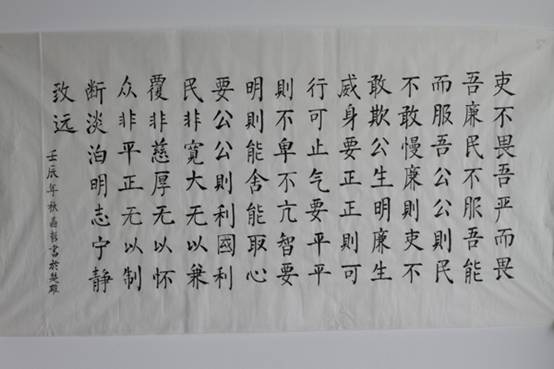 吏不畏吾严而畏
吾廉民不服吾能
而服吾公公則民
不敢慢廉則吏不
敢欺公生明廉生
威身要正正則可
行可止气要平平
則不卑不亢智要
明則能舍能取心
要公公則利國利
民非寬大无以兼
覆非慈厚无以怀
众非平正无以制
断淡泊明志宁静
致远
壬辰年秋書於楚雄